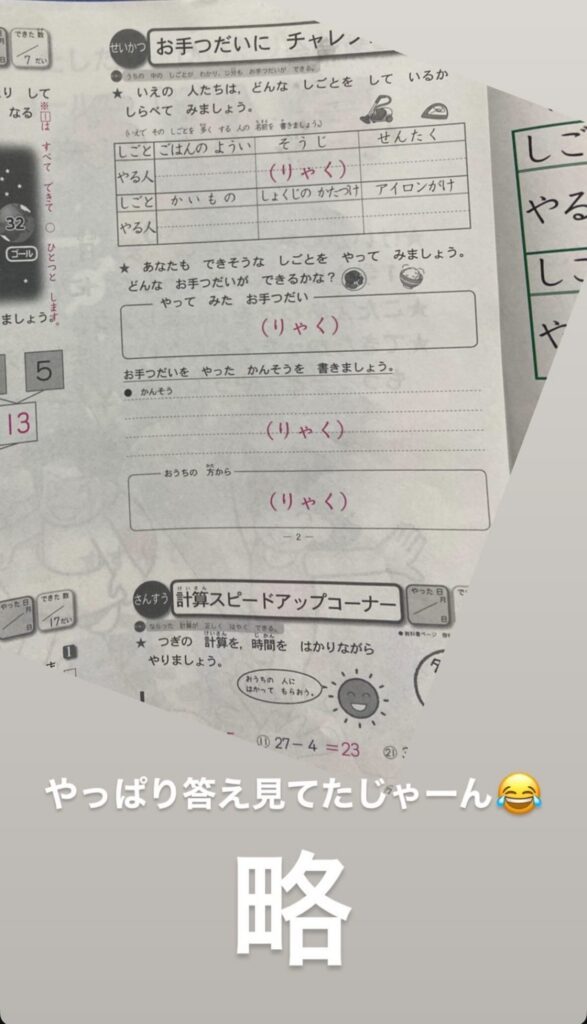 できた数
7だい
せいかつ
お手つだいに チャレン
うちの 中の しごとが わかり、じ分も お手つだいが できる。
★ いえの 人たちは、どんな しごとを して いるか
しらべて みましょう。
(いえで その しごとを 多く する 人の 名前を 書きましょう。)
しごと ごはんの ようい そうじ せんたく
やる人 (りゃく)
しごと かいもの しょくじの かたづけ アイロンがけ
やる人
★ あなたも できそうな しごとを やって みましょう。
どんな お手つだいが できるかな?
やって みた お手つだい
(りゃく)
お手つだいを やった かんそうを 書きましょう。
● かんそう
(りゃく)
おうちの 方から
(りゃく)
― 2 ―
して
なる
※1は すべて できて ○ ひとつと します。
32
ゴール
ましょう。
5
13
しご
やる
しご
や
やった日
月
日
できた数
17だい
1
さんすう
計算スピードアップコーナー
けいさん
やった日
月
日
ならった 計算が 正しく はやく できる。
●教科書ページ
★ つぎの 計算を、時間を はかりながら
けいさん じかん
やりましょう。
おうちの 人に
はかって もらおう。
⑪ 27－4 ＝23
㉑
やっぱり答え見てたじゃーん😂
略